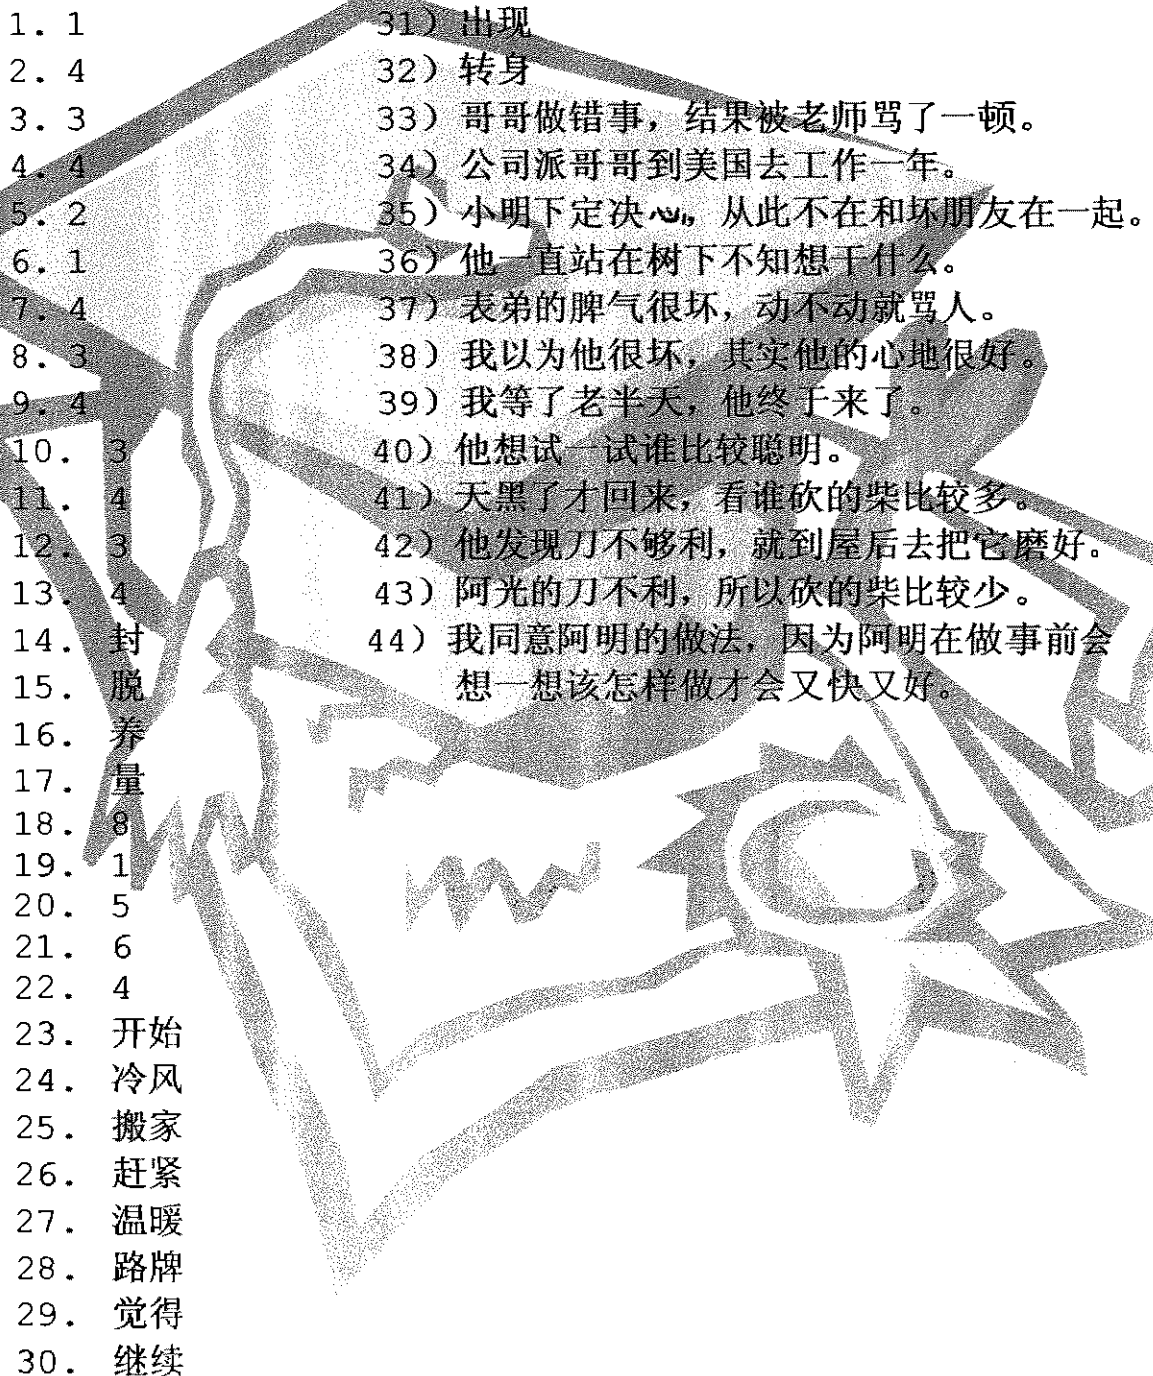 1. 1
2. 4
3. 3
4. 4
5. 2
6. 1
7. 4
8. 3
9. 4
10. 3
11. 4
12. 3
13. 4
14. 封
15. 脱
16. 养
17. 量
18. 8
19. 1
20. 5
21. 6
22. 4
23. 开始
24. 冷风
25. 搬家
26. 赶紧
27. 温暖
28. 路牌
29. 觉得
30. 继续
31) 出现
32) 转身
33) 哥哥做错事，结果被老师骂了一顿。
34) 公司派哥哥到美国去工作一年。
35) 小明下定决心，从此不在和坏朋友在一起。
36) 他一直站在树下不知想干什么。
37) 表弟的脾气很坏，动不动就骂人。
38) 我以为他很坏，其实他的心地很好。
39) 我等了老半天，他终于来了。
40) 他想试一试谁比较聪明。
41) 天黑了才回来，看谁砍的柴比较多。
42) 他发现刀不够利，就到屋后去把它磨好。
43) 阿光的刀不利，所以砍的柴比较少。
44) 我同意阿明的做法，因为阿明在做事前会
想一想该怎样做才会又快又好。